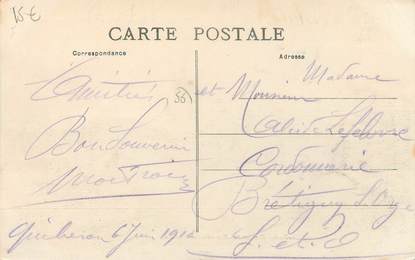 15€
CARTE POSTALE
Correspondance
Adresse
Amitiés
Bon Souvenir
35
Madame
et Monsieur
Lefebvre
Cordonnerie
Brétigny S. Orge
S. et O
Quiberon 6 Juin 191